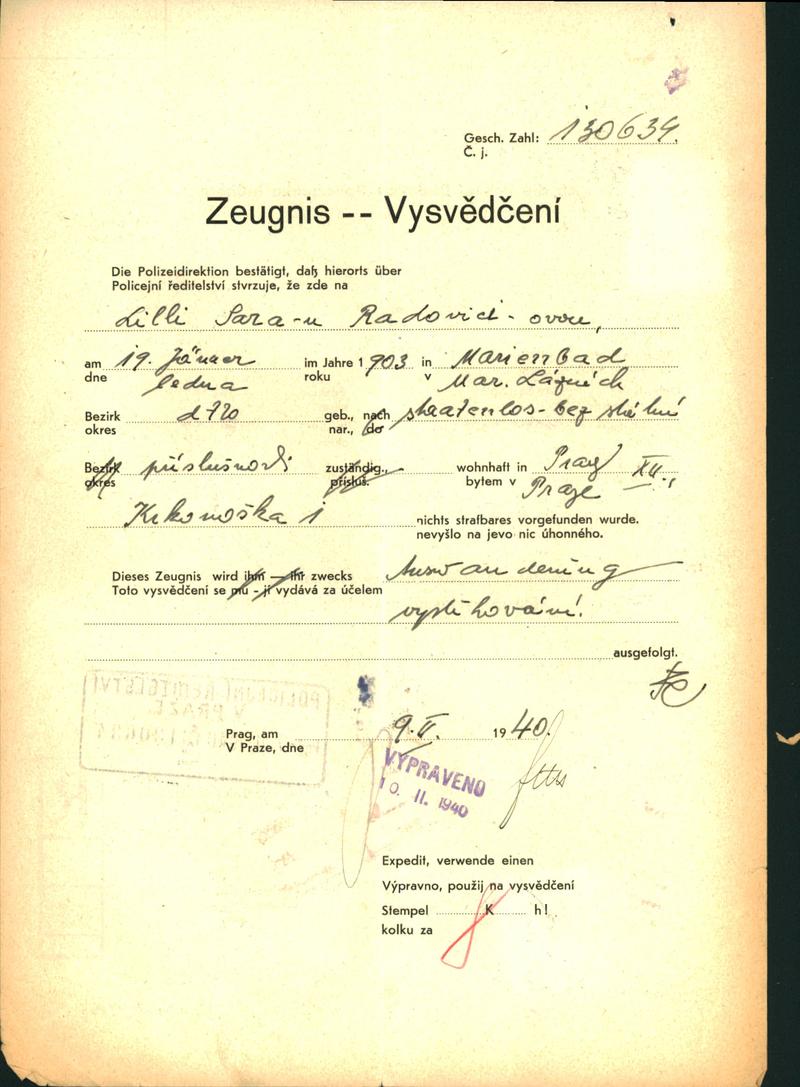 Gesch. Zahl: 130634.
Č. j.
Zeugnis -- Vysvědčení
Die Polizeidirektion bestätigt, daß hierorts über
Policejní ředitelství stvrzuje, že zde na
Lilli Sara-u Radovici-ovou,
am 19. Jänner im Jahre 1903 in Marienbad
dne ledna roku v Mar. Lázních
Bezirk dto geb., nach staatenlos - bez státní
okres nar., do
Bezirk příslušnosti zuständig., wohnhaft in Prag XII.,
okres přísluš. bytem v Praze
Krkonošká 1 nichts strafbares vorgefunden wurde.
nevyšlo na jevo nic úhonného.
Dieses Zeugnis wird ihm — ihr zwecks Auswanderung
Toto vysvědčení se mu - jí vydává za účelem
vystěhování.
ausgefolgt.
POLICEJNÍ ŘEDITELSTVÍ
V PRAZE
Prag, am 9. II. 1940.
V Praze, dne
VYPRAVENO
10. II. 1940
Expedit, verwende einen
Výpravno, použij na vysvědčení
Stempel K h!
kolku za